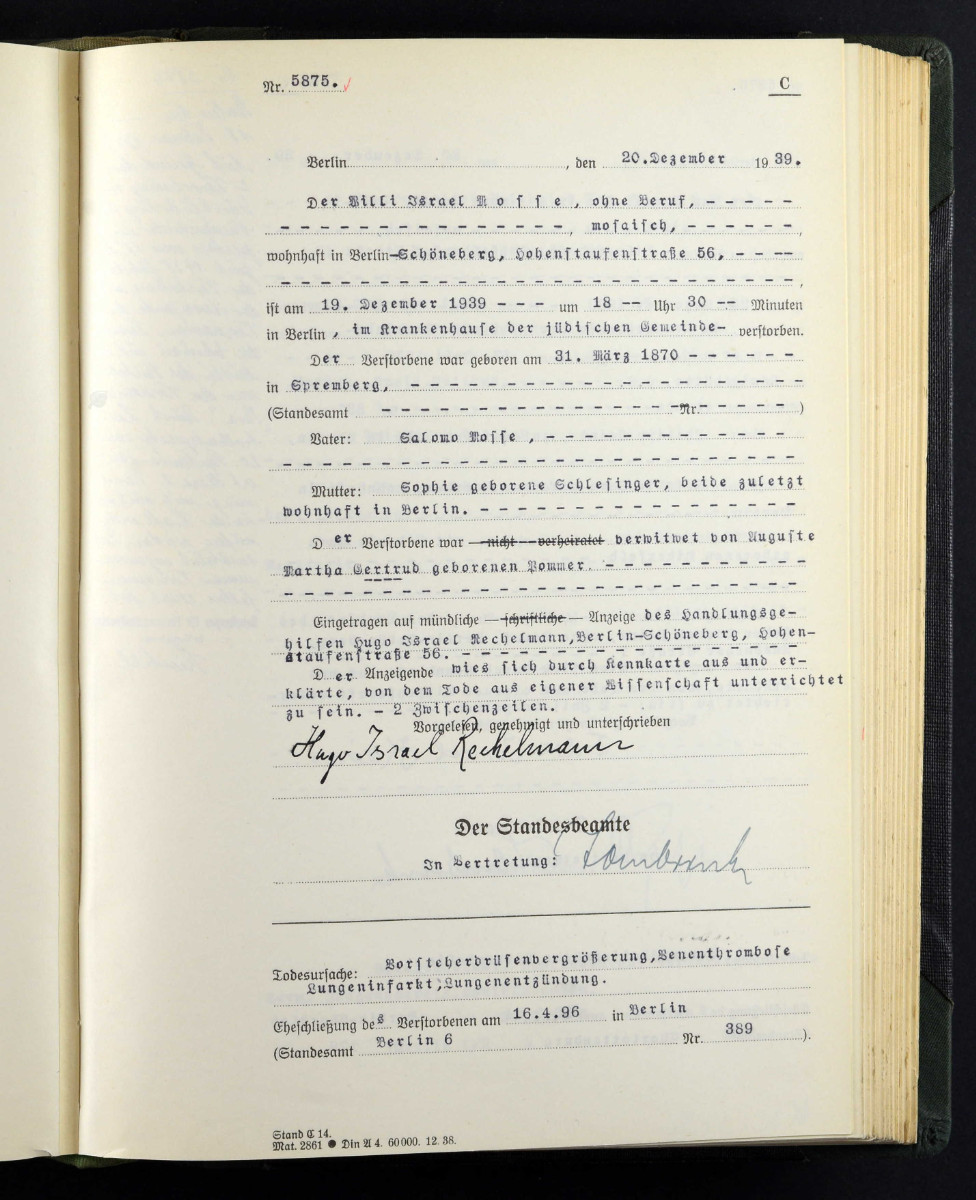 Nr. 5875.
C
Berlin, den 20.Dezember 1939.
Der Willi Israel Mosse, ohne Beruf, - - - - -
- - - - - - - - - - - - - - -, mosaisch, - - - - - -,
wohnhaft in Berlin-Schöneberg, Hohenstaufenstraße 56, - - - -
- - - - - - - - - - - - - - - - - - - - - - - - - - -,
ist am 19. Dezember 1939 - - - um 18 -- Uhr 30 -- Minuten
in Berlin, im Krankenhause der jüdischen Gemeinde- verstorben.
Der Verstorbene war geboren am 31. März 1870 - - - - - -
in Spremberg, - - - - - - - - - - - - - - - - - - - - -
(Standesamt - - - - - - - - - - - - - - - Nr. - - - - - )
Vater: Salomo Mosse, - - - - - - - - - - - - - -
- - - - - - - - - - - - - - - - - - - - - - - - - - -
Mutter: Sophie geborene Schlesinger, beide zuletzt
wohnhaft in Berlin. - - - - - - - - - - - - - - - - -
Der Verstorbene war - nicht - verheiratet verwitwet von Auguste
Martha Gertrud geborenen Pommer. - - - - - - - - - - -
- - - - - - - - - - - - - - - - - - - - - - - - - - -
Eingetragen auf mündliche - schriftliche - Anzeige des Handlungsge-
hilfen Hugo Israel Rechelmann,Berlin-Schöneberg, Hohen-
staufenstraße 56. - - - - - - - - - - - - - - - - - -
Der Anzeigende wies sich durch Kennkarte aus und er-
klärte, von dem Tode aus eigener Wissenschaft unterrichtet
zu sein. - 2 Zwischenzeilen.
Vorgelesen, genehmigt und unterschrieben
Hugo Israel Rechelmann
Der Standesbeamte
In Vertretung:
Todesursache: Vorsteherdrüsenvergrößerung,Venenthrombose
Lungeninfarkt,Lungenentzündung.
Eheschließung des Verstorbenen am 16.4.96 in Berlin
(Standesamt Berlin 6 Nr. 389 ).
Stand C 14.
Mat. 2861 ● Din A 4. 60000. 12. 38.